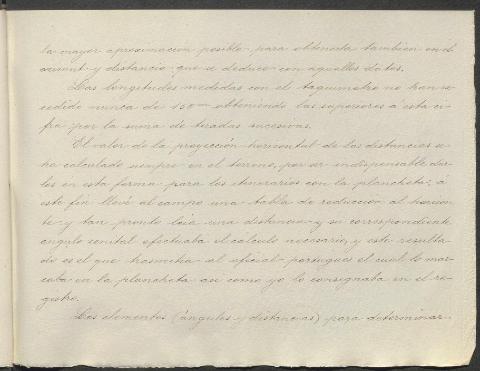 la mayor aproximacion posible para obtenerla tambien en el
acimut y distancia que se deduce con aquellos datos.
Las longitudes medidas con el taquimetro no han ex-
cedido nunca de 150 m obteniendo las superiores á esta ci-
fra por la suma de tiradas sucesivas.
El valor de la proyección horizontal de las distancias se
ha calculado siempre en el terreno, por ser indispensable dar-
los en esta forma para los itinerarios con la plancheta; á
este fin llevé al campo una tabla de reducción al horizon-
te y tan pronto leia una distancia y su correspondiente
angulo cenital efectuaba el cálculo necesario, y este resulta-
do es el que trasmitia al oficial portugues el cual lo mar-
caba en la plancheta asi como yo lo consignaba en el re-
gistro.
Los elementos (ángulos y distancias) para determinar